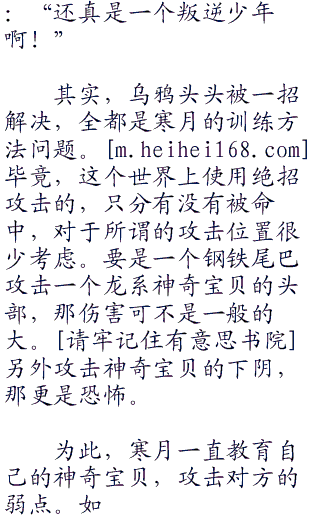 ：“还真是一个叛逆少年
啊！”
其实，乌鸦头头被一招
解决，全都是寒月的训练方
法问题。[m.heihei168.com]
毕竟，这个世界上使用绝招
攻击的，只分有没有被命
中，对于所谓的攻击位置很
少考虑。要是一个钢铁尾巴
攻击一个龙系神奇宝贝的头
部，那伤害可不是一般的
大。[请牢记住有意思书院]
另外攻击神奇宝贝的下阴，
那更是恐怖。
为此，寒月一直教育自
己的神奇宝贝，攻击对方的
弱点。如